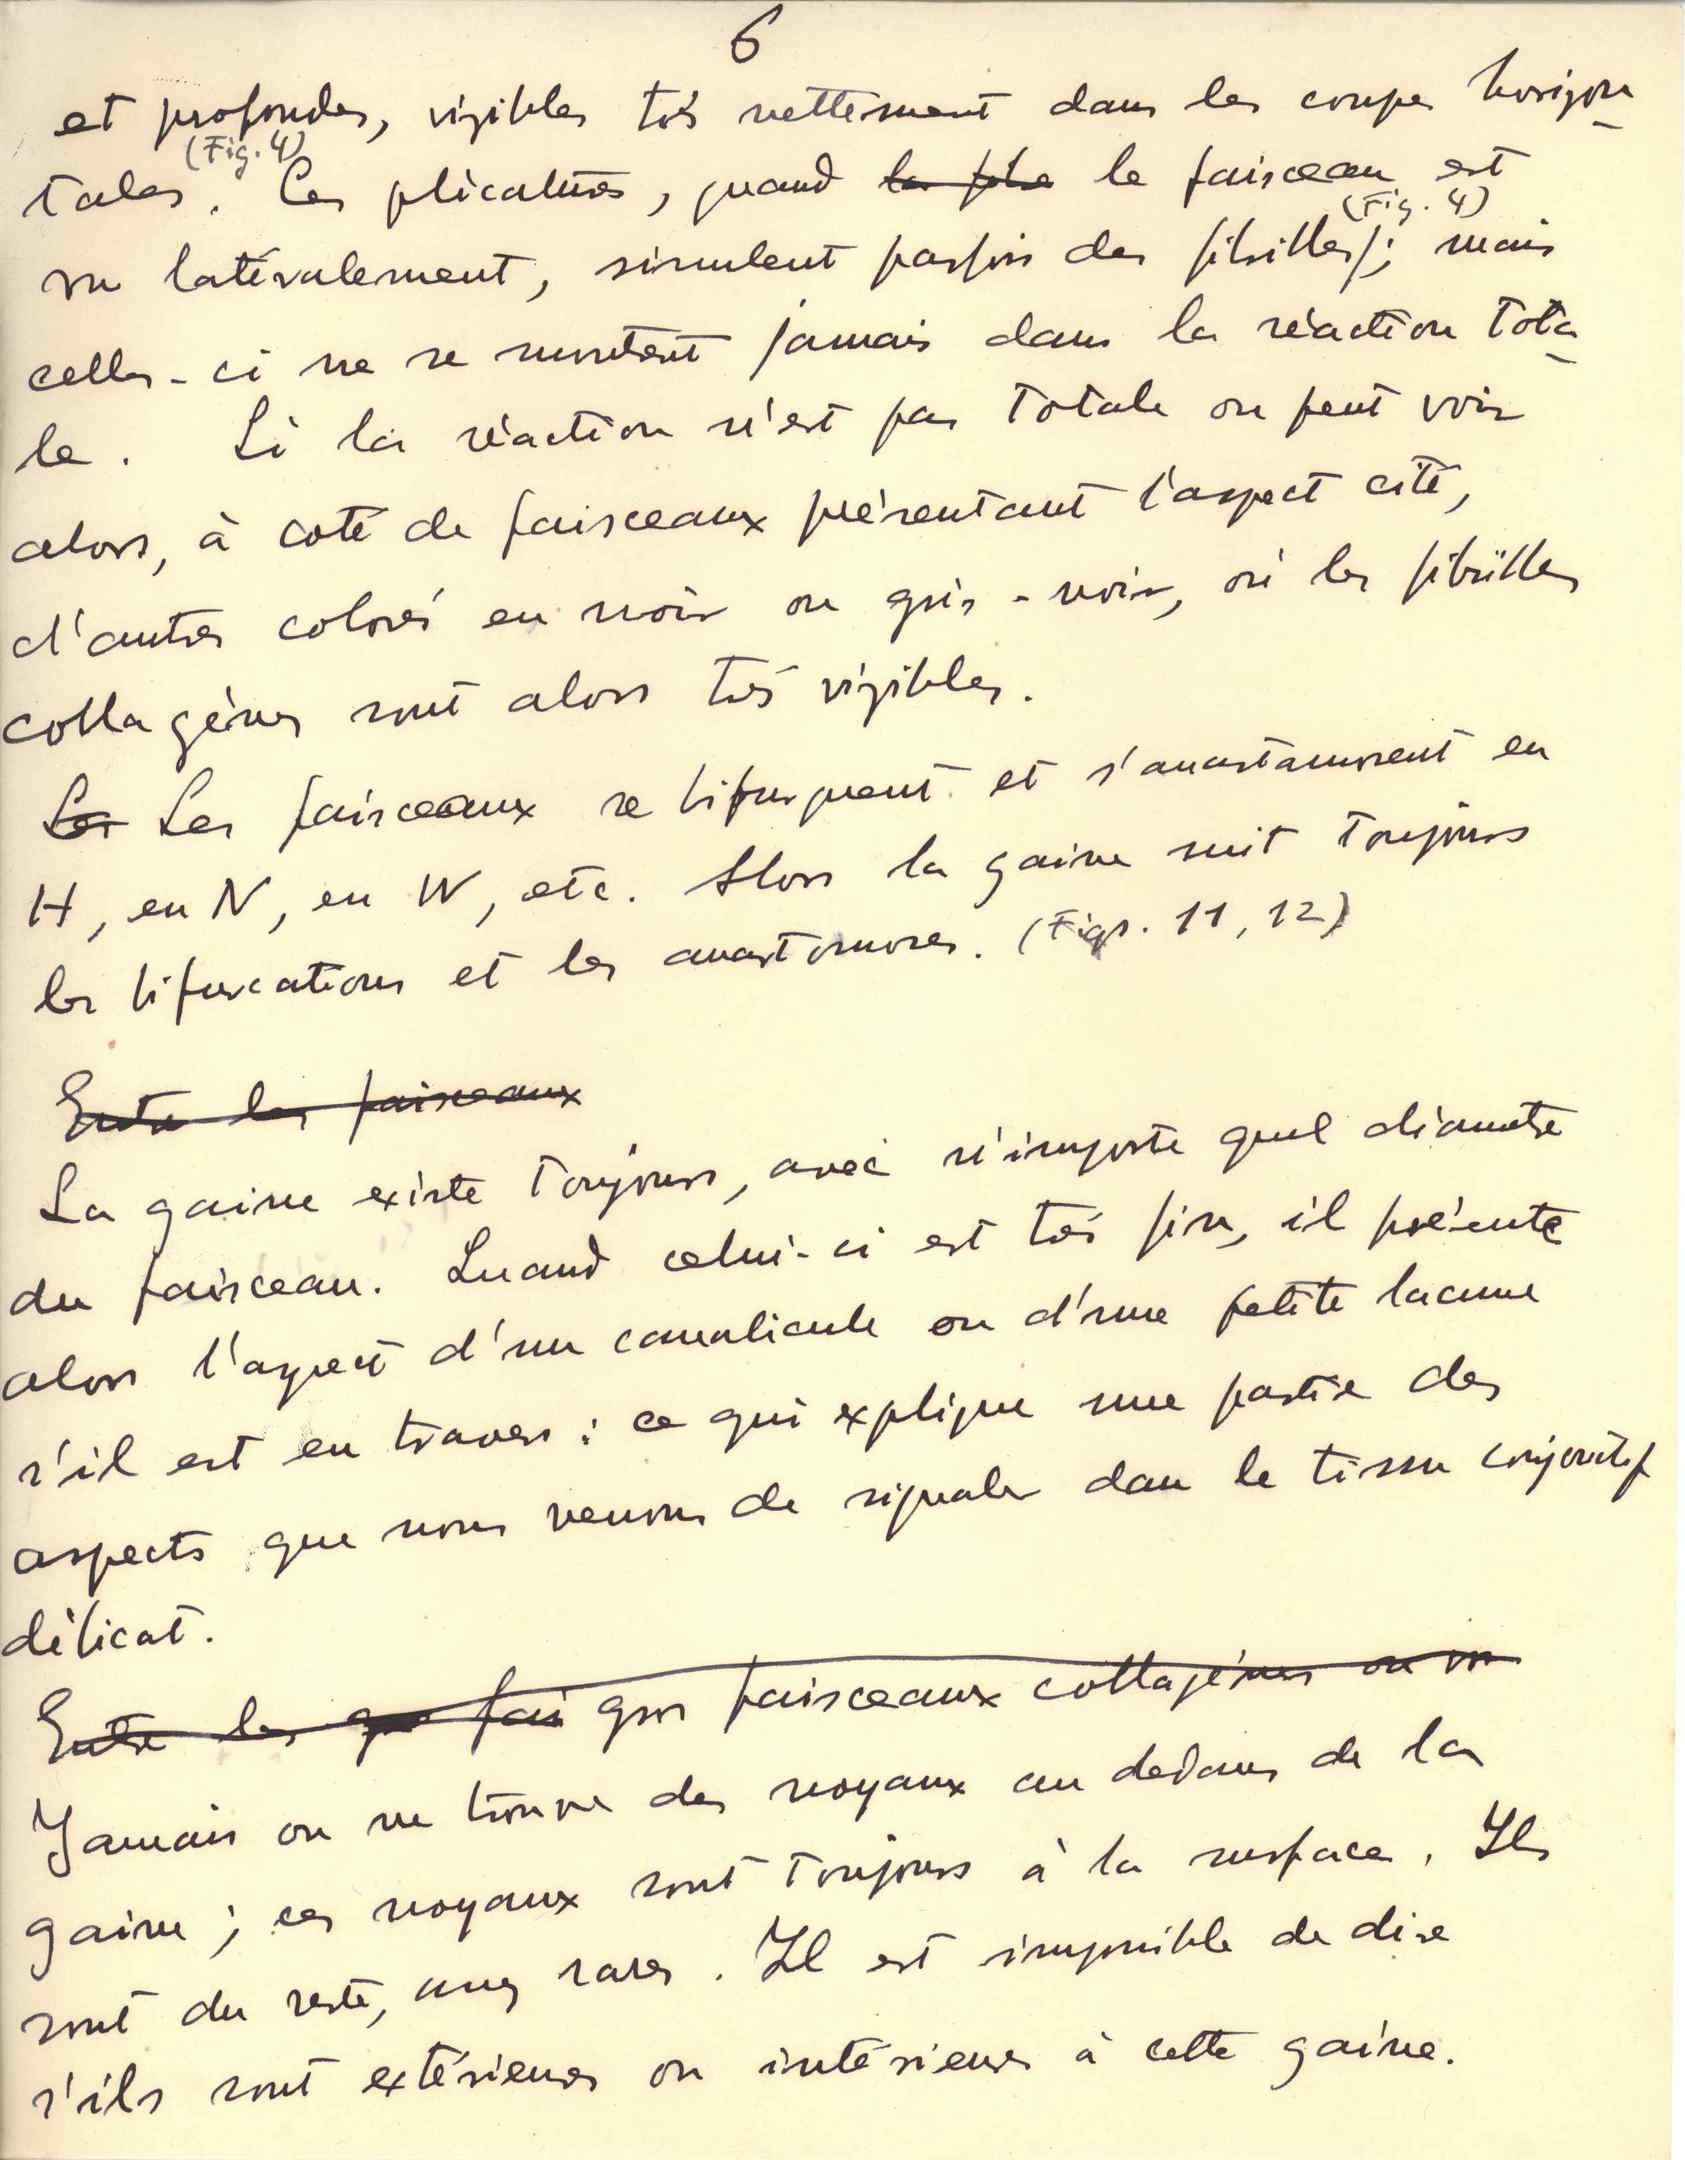 6
et profondes, visibles très nettement dans les coupes horizon-
(Fig. 4)
tales. Ces plicatures, quand le faisceau est
(Fig. 4)
vu latéralement, simulent parfois des fibrilles; mais
celles-ci ne se montent jamais dans la réaction tota-
le. Si la réaction n'est pas totale on peut voir
alors, à coté de faisceaux présentant l'aspect cité,
d'autres colorés en noir ou gris-noir, où les fibrilles
collagènes sont alors très visibles.
Les Les faisceaux se bifurquent et s'anastamosent en
H, en N, en W, etc. Alors la gaine suit toujours
les bifurcations et les anastomoses. (Figs. 11, 12)
Entre les faisceaux
La gaine existe toujours, avec n'importe quel diamètre
du faisceau. Quand celui-ci est très fin, il présente
alors l'aspect d'un canalicule ou d'une petite lacune
s'il est en travers: ce qui explique une partie des
aspects que nous venons de signaler dan le tissu conjonctif
délicat.
Entre les gro fai gros faisceaux collagènes on voi
Jamais on ne trouve des noyaux au dedans de la
gaine; ces noyaux sont toujours à la surface. Ils
sont du reste, assez rares. Il est impossible de dire
s'ils sont extérieurs ou intérieurs à cette gaine.